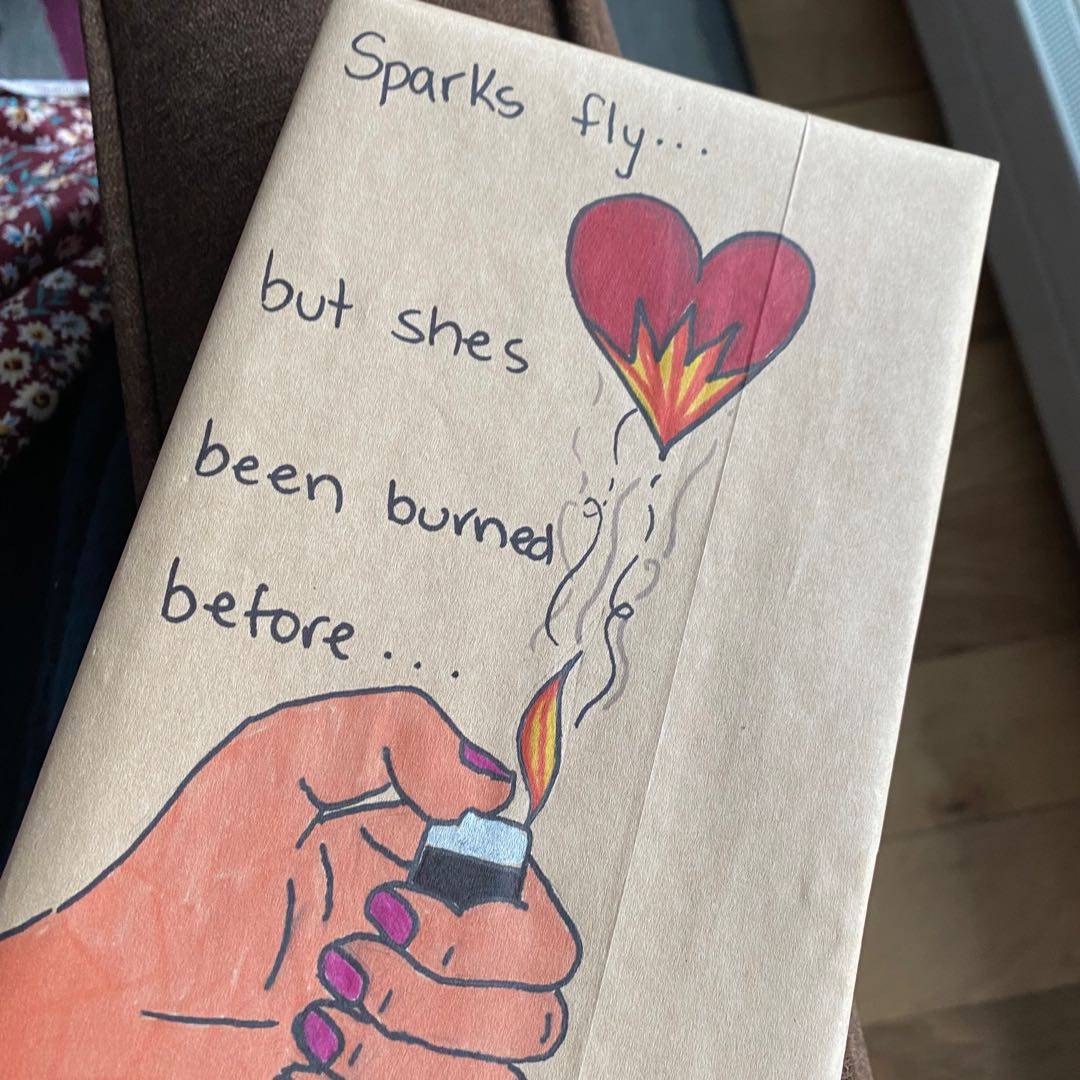 Sparks fly...
but shes
been burned
before...